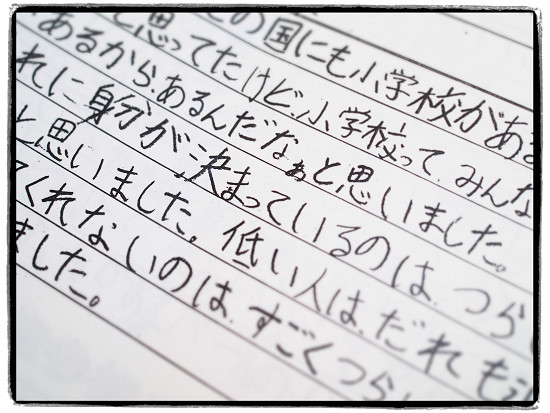 どの国にも小学校があ
と思ってたけど、小学校って、みんな
あるから、あるんだなぁと思いました。
れに身分が決まっているのは、つら
と思いました。低い人は、だれも
てくれないのは、すごくつら
ました。